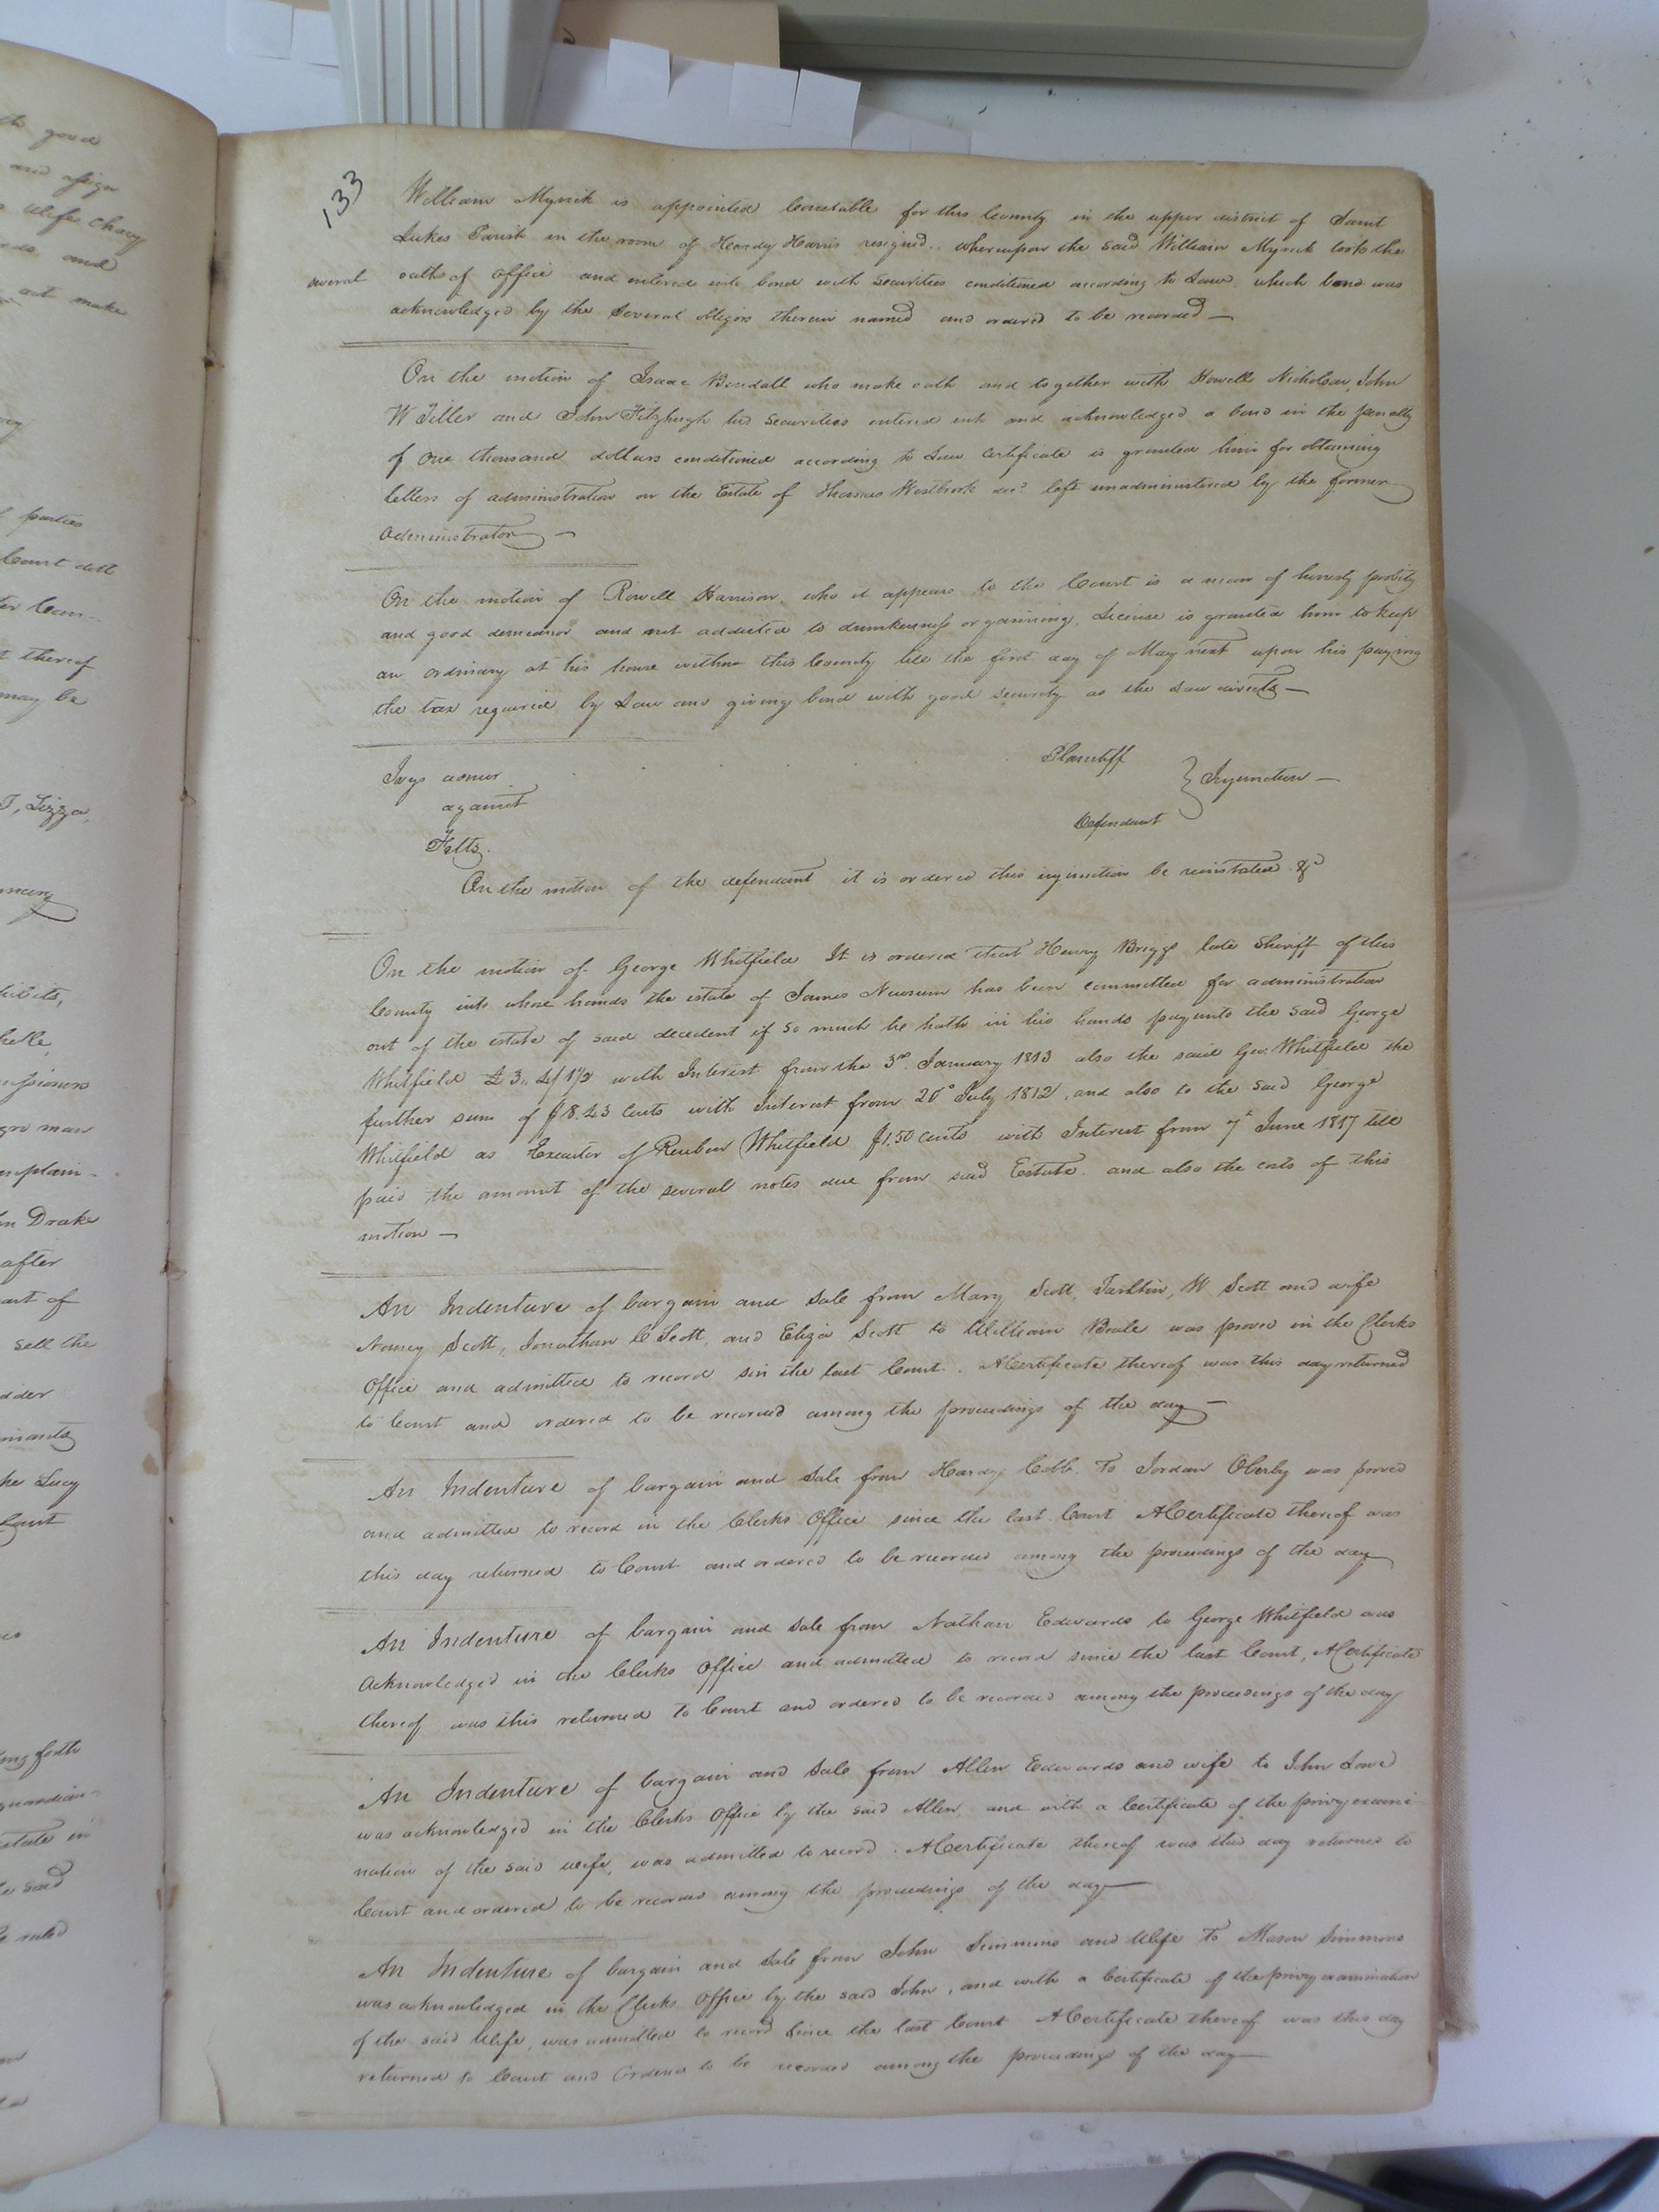 th good
and assign
Wife Chary
and
act make
parties
Court doth
thereof
may be
T, Lizza,
man
Drake
after
part of
sell the
Lucy
Court
forth
guardian-
estate in
said
133
William Myrick is appointed Constable for this County in the upper district of Saint
Lukes Parish in the room of Hardy Harris resigned. whereupon the said William Myrick took the
several oaths of office and entered into bond with securities conditioned according to Law, which bond was
acknowledged by the several obligors therein named and ordered to be recorded
On the motion of Isaac Bendall who make oath and together with Howell Nicholson, John
W Tiller and John Fitzhugh his securities entered into and acknowledged a bond in the penalty
of one thousand dollars conditioned according to Law Certificate is granted him for obtaining
letters of administration on the Estate of Thomas Westbrook decd left unadministered by the former
administrator
On the motion of Rowell Harrison, who it appears to the Court is a man of honesty probity
and good demeanor and not addicted to drunkenness or gaming, License is granted him to keep
an ordinary at his house within this County till the first day of May next upon his paying
the tax required by Law and giving bond with good security as the Law directs
Ivys admor Plaintiff
against } Injunction
Felts. Defendant
On the motion of the defendant it is ordered this injunction be reinstated &c
On the motion of George Whitfield It is ordered that Henry Briggs late Sheriff of this
County into whose hands the estate of James Newsum has been committed for administration
out of the estate of said decedent if so much he hath in his hands pay unto the said George
Whitfield £3,, 4/1½ with Interest from the 3rd January 1813 also the said Geo. Whitfield the
further sum of $8.43 Cents with Interest from 20° July 1812, and also to the said George
Whitfield as Executor of Reuben Whitfield $1.50 cents with Interest from 7th June 1817 till
paid the amount of the several notes due from said Estate. and also the costs of this
motion
An Indenture of bargain and Sale from Mary Scott, W Scott and wife
Nancy Scott, Jonathan C Scott, and Eliza Scott to William Beale was proved in the Clerks
Office and admitted to record sin the last Court. A Certificate thereof was this day returned
to Court and ordered to be recorded among the proceedings of the day
An Indenture of bargain and Sale from Hardy Cobb. To Jordan Oberby was proved
and admitted to record in the Clerks Office since the last Court A Certificate thereof was
this day returned to Court and ordered to be recorded among the proceedings of the day
An Indenture of bargain and Sale from Nathan Edwards to George Whitfield was
Acknowledged in the Clerks Office and admitted to record since the last Court, A Certificate
thereof was this returned to Court and ordered to be recorded among the proceedings of the day
An Indenture of bargain and Sale from Allen Edwards and wife to John Love
was acknowledged in the Clerks Office by the said Allen, and with a Certificate of the privy exami-
nation of the said wife, was admitted to record. A Certificate thereof was this day returned to
Court and ordered to be recorded among the proceedings of the day
An Indenture of bargain and Sale from John Simmons and Wife To Mason Simmons
was acknowledged in the Clerks Office by the said John, and with a Certificate of the privy examination
of the said Wife, was admitted to record Since the last Court A Certificate thereof was this day
returned to Court and Ordered to be recorded among the proceedings of the day